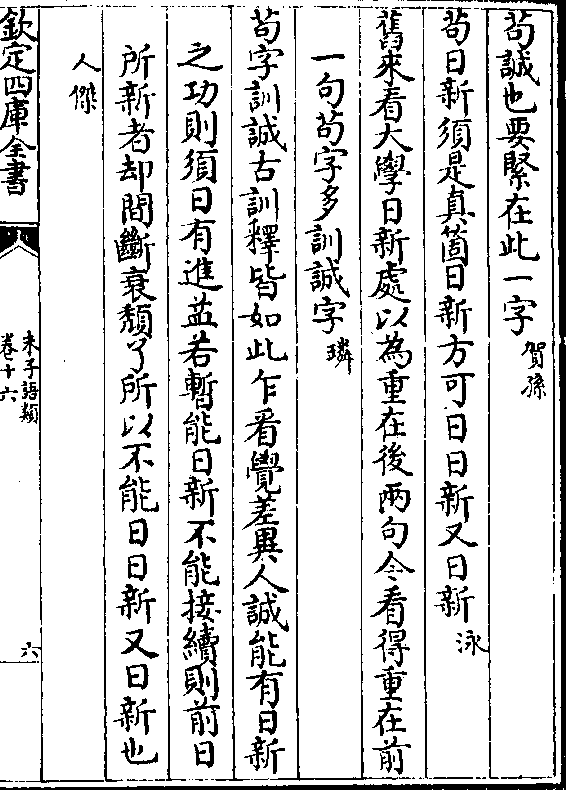 苟誠也要緊在此一字賀孫
苟日新須是真箇日新方可日日新又日新泳
舊來看大學日新處以為重在後兩句今看得重在前
一句苟字多訓誠字璘
苟字訓誠古訓釋皆如此乍看覺差異人誠能有日新
之功則須日有進益若暫能日新不能接續則前日
所新者却間斷衰頽了所以不能日日新又日新也
人傑
欽定四庫全書
朱子語類
卷十六
六